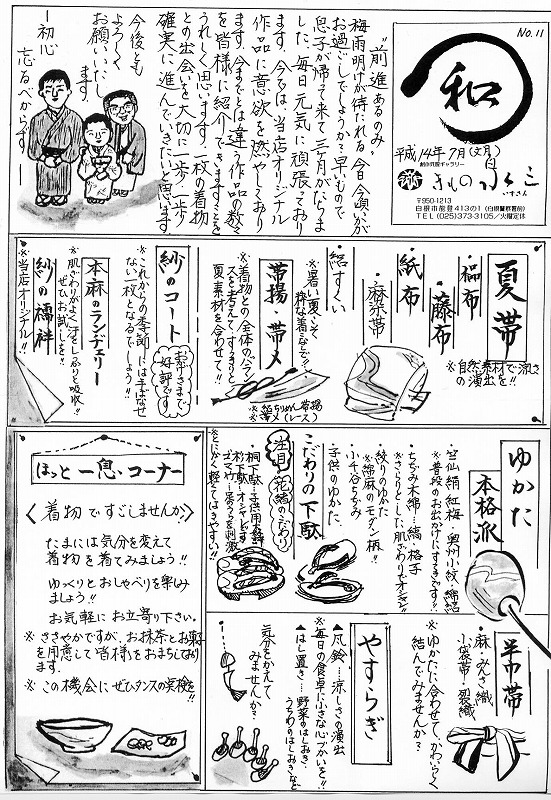 No.11
和
平成14年7月(文月)
創作呉服ギャラリー
きもの
いずさん
〒950-1213
白根市能登413の1(白根警察署前)
TEL(025)373-3105/火曜定休
"前進あるのみ"
梅雨明けが待たれる今日今頃いかが
お過ごしでしょうか?早いもので
息子が帰って来て三ヶ月がたちま
した。毎日元気に頑張っており
ます。今では、当店オリジナル
作品に意欲を燃やしており
ます。今までとは違う作品の数々
を皆様に紹介できますことを
うれしく思います。一枚の着物
との出会いを大切に一歩一歩
確実に進んでいきたいと思います。
今後とも
よろしく
お願いいたし
ます。
―初心
忘るべからず―
夏帯
※自然素材で涼しさ
の演出を!!
・藤布
・紙布
麻茶帯
・絽すくい
※暑い夏こそ
粋な着こなしで!!
帯揚・帯〆
※着物との全体のバラン
スを考えて、すっきりと
夏素材を合わせて!!
※絽ちりめん帯揚
※帯〆(レース)
紗のコート
お客さまでも
好評です。
※これからの季節には手ばなせ
ない一枚となるでしょう!!
本麻のランヂェリー
※肌ざわりがよく汗をしっかりと吸収!!
ぜひお試しを!!
紗の襦袢
※当店オリジナル!!
ゆかた
本格派
・竺仙絹紅梅・奥州小紋・綿絽
※普段のお出かけにもするきです!!
・ちぢみ木綿…縞、格子
※さらりとした肌ざわりでオシャレ!!
・絞りのゆかた
※綿麻のモダン柄!!
・小千谷ちぢみ
・子供のゆかた
こだわりの下駄
注目
花緒のこだわり
※とにかく軽くてはきやすい!!
半巾帯
・麻・みんさー織
・小袋帯・裂織
※ゆかたに合わせて、かわいらしく
結んでみませんか?
やすらぎ
▲風鈴…涼しさの演出
※毎日の食卓に小さな心づかいを!!
▲はし置き…野菜のはしおき、
うちわのはしおきなど
気分をかえて
みませんか?
ほっと一息・コーナー
〈着物ですごしませんか〉
たまには気分を変えて
着物を着てみましょう!!
ゆっくりとおしゃべりを楽しみ
ましょう!!
お気軽にお立寄り下さい。
※ささやかですが、お抹茶とお菓子
を用意して皆様をおまちしており
ます。
※この機会にぜひタンスの実検を!!